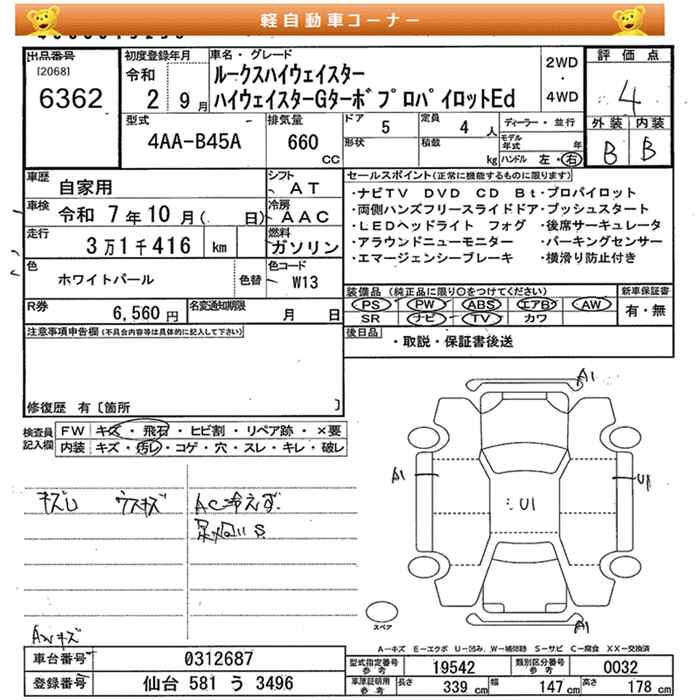 軽自動車コーナー
出品番号
[2068]
6362
初度登録年月
令和
2 9月
車名・グレード
ルークスハイウェイスター
ハイウェイスターGターボプロパイロットEd
2WD
・
4WD
評価点
4
外装 内装
B B
型式
4AA-B45A
排気量
660
cc
ドア
5
定員
4 人
形状
積数
kg
ディーラー・並行
モデル年式 年
ハンドル 左・右
車歴
自家用
シフト
AT
車検
令和 7年10月( 日)
冷房
AAC
走行
3万1千416 km
燃料
ガソリン
色
ホワイトパール
色替
色コード
W13
R券
6,560 円
名変通知期限
月 日
セールスポイント(正常に機能するものに限ります)
・ナビTV DVD CD Bt・プロパイロット
・両側ハンズフリースライドドア・プッシュスタート
・LEDヘッドライト フォグ ・後席サーキュレータ
・アラウンドニューモニター ・パーキングセンサー
・エマージェンシーブレーキ ・横滑り防止付き
装備品(純正品に限り○をつけてください)
PS PW ABS エアB AW
SR ナビ TV カワ
新車保証書
有・無
後日品
・取説・保証書後送
注意事項申告欄(不具合内容等は具体的に記入して下さい)
修復歴 有〔箇所 〕
検査員
記入欄
FW キズ・飛石・ヒビ割・リペア跡・×要
内装 キズ・汚レ・コゲ・穴・スレ・キレ・破レ
キズU ウスキズ
AC冷えず
足廻りS
AWキズ
A1
A1
U1
U1
A1
スペア
A－キズ E－エクボ U－凹み W－補修跡 S－サビ C－腐食 XX－交換済
車台番号 0312687
登録番号 仙台 581 う 3496
型式指定番号 参考 19542
類別区分番号 参考 0032
車庫証明用 参考 長さ 339 cm 幅 147 cm 高さ 178 cm